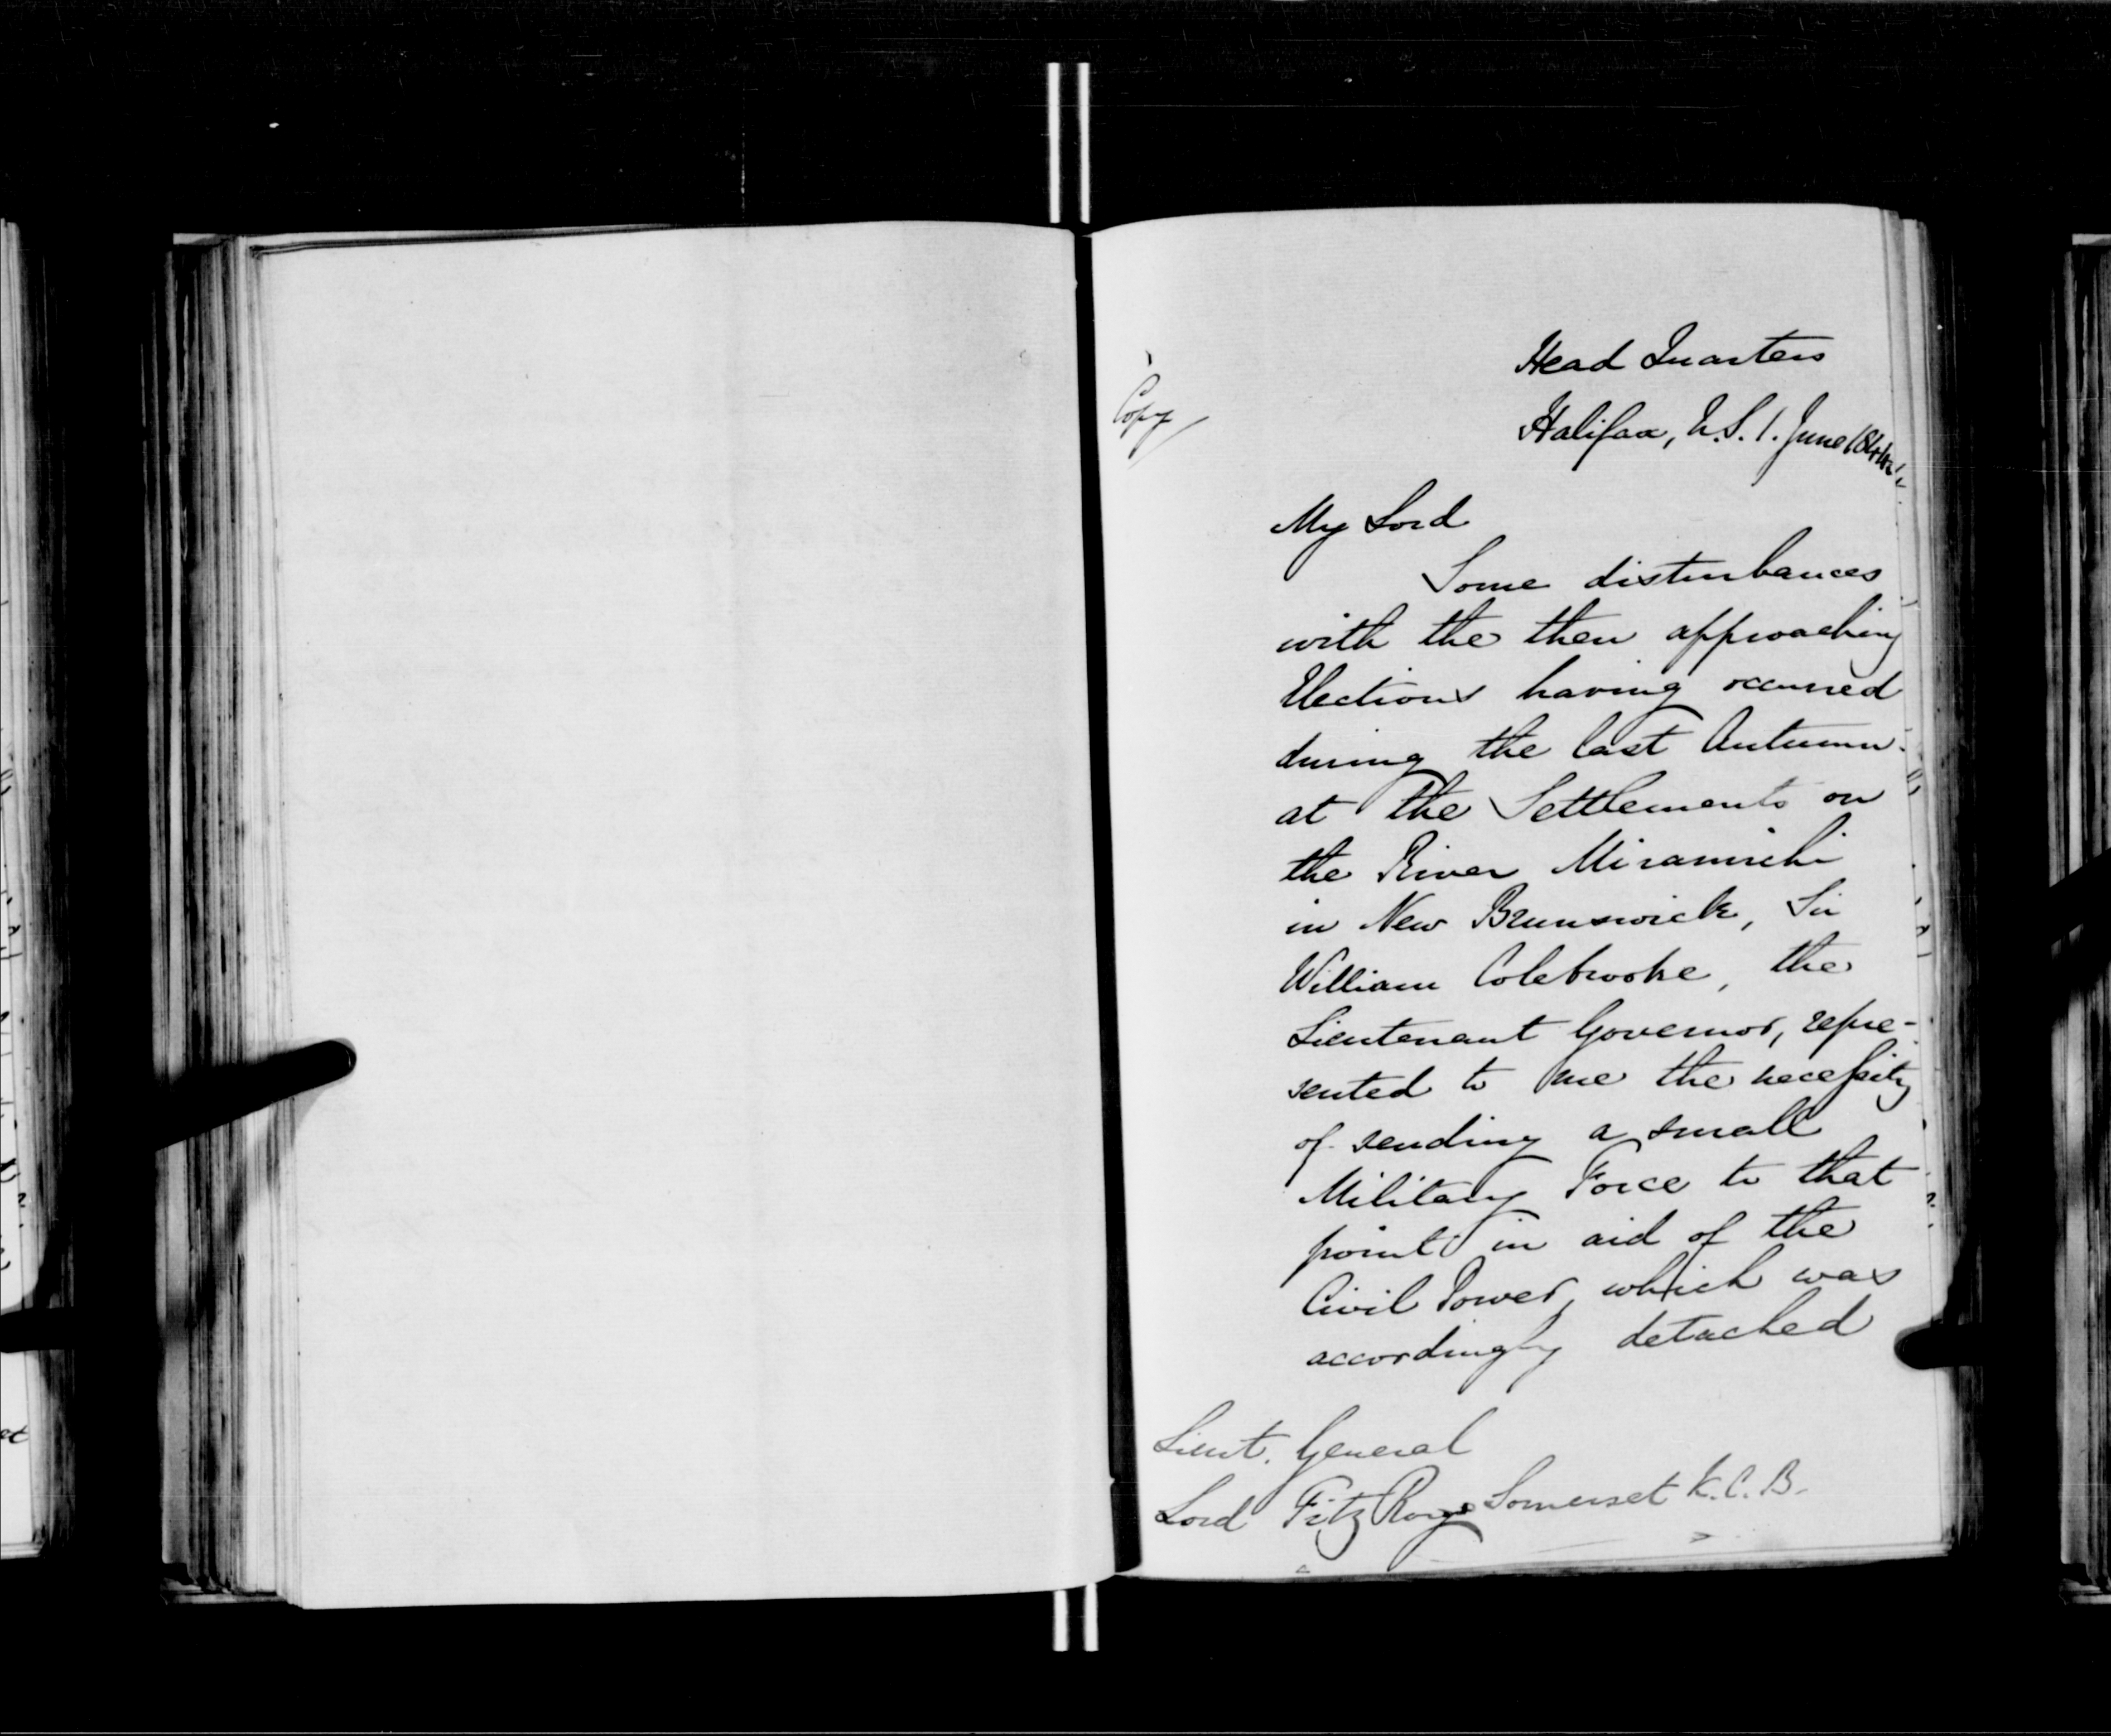 Copy
Head Quarters
Halifax, N.S. 1. June 1844.
My Lord
Some disturbances
with the then approaching
Elections having occurred
during the last Autumn
at the Settlements on
the River Miramichi
in New Brunswick, Sir
William Colebrooke, the
Lieutenant Governor, repre-
sented to me the necessity
of sending a small
Military Force to that
point in aid of the
Civil Power, which was
accordingly detached
Lieut. General
Lord FitzRoy Somerset K.C.B.